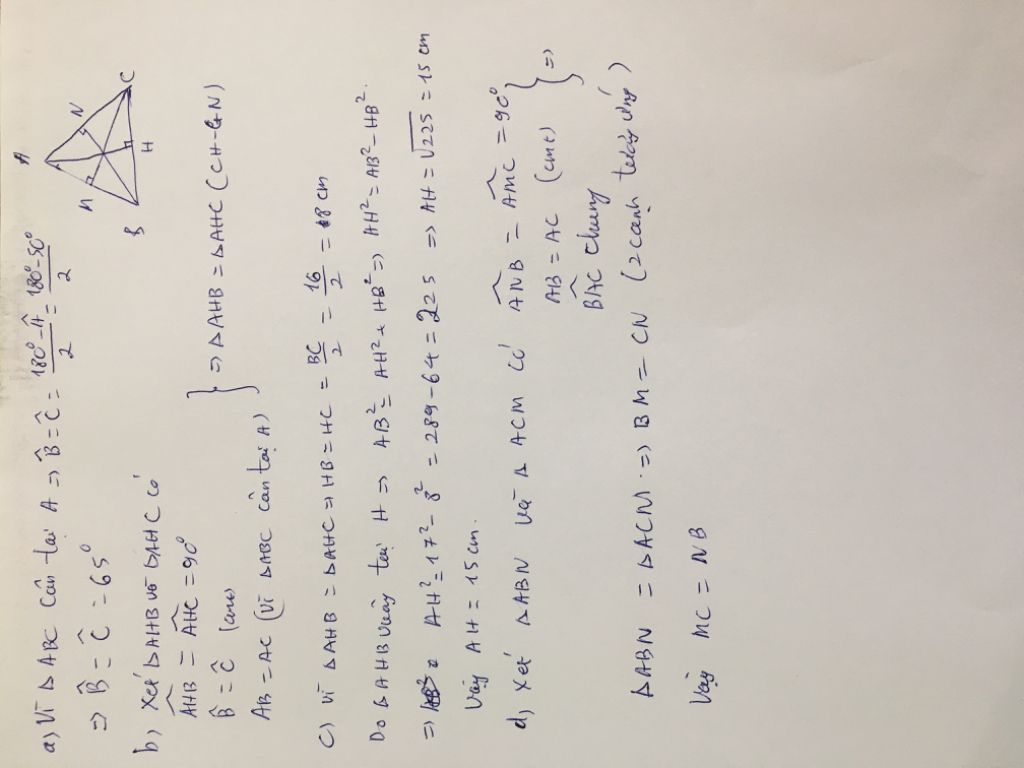 a) Vì Δ ABC cân tại A => B̂ = Ĉ = (180° - Â)/2 = (180° - 50°)/2
=> B̂ = Ĉ = 65°
A
M
N
B
H
C
b) Xét ΔAHB và ΔAHC có
AHB̂ = AHĈ = 90°
B̂ = Ĉ (cmt)
AB = AC (Vì ΔABC cân tại A)
} => ΔAHB = ΔAHC (CH-GN)
c) Vì ΔAHB = ΔAHC => HB = HC = BC/2 = 16/2 = 8 cm
Do ΔAHB vuông tại H => AB² = AH² + HB² => AH² = AB² - HB².
=> AH² = 17² - 8² = 289 - 64 = 225 => AH = √225 = 15 cm
Vậy AH = 15 cm.
d) Xét ΔABN và Δ ACM có ANB̂ = AMĈ = 90°
AB = AC (cmt)
BAĈ chung
} =>
ΔABN = ΔACM => BM = CN (2 cạnh tương ứng)
Vậy MC = NB